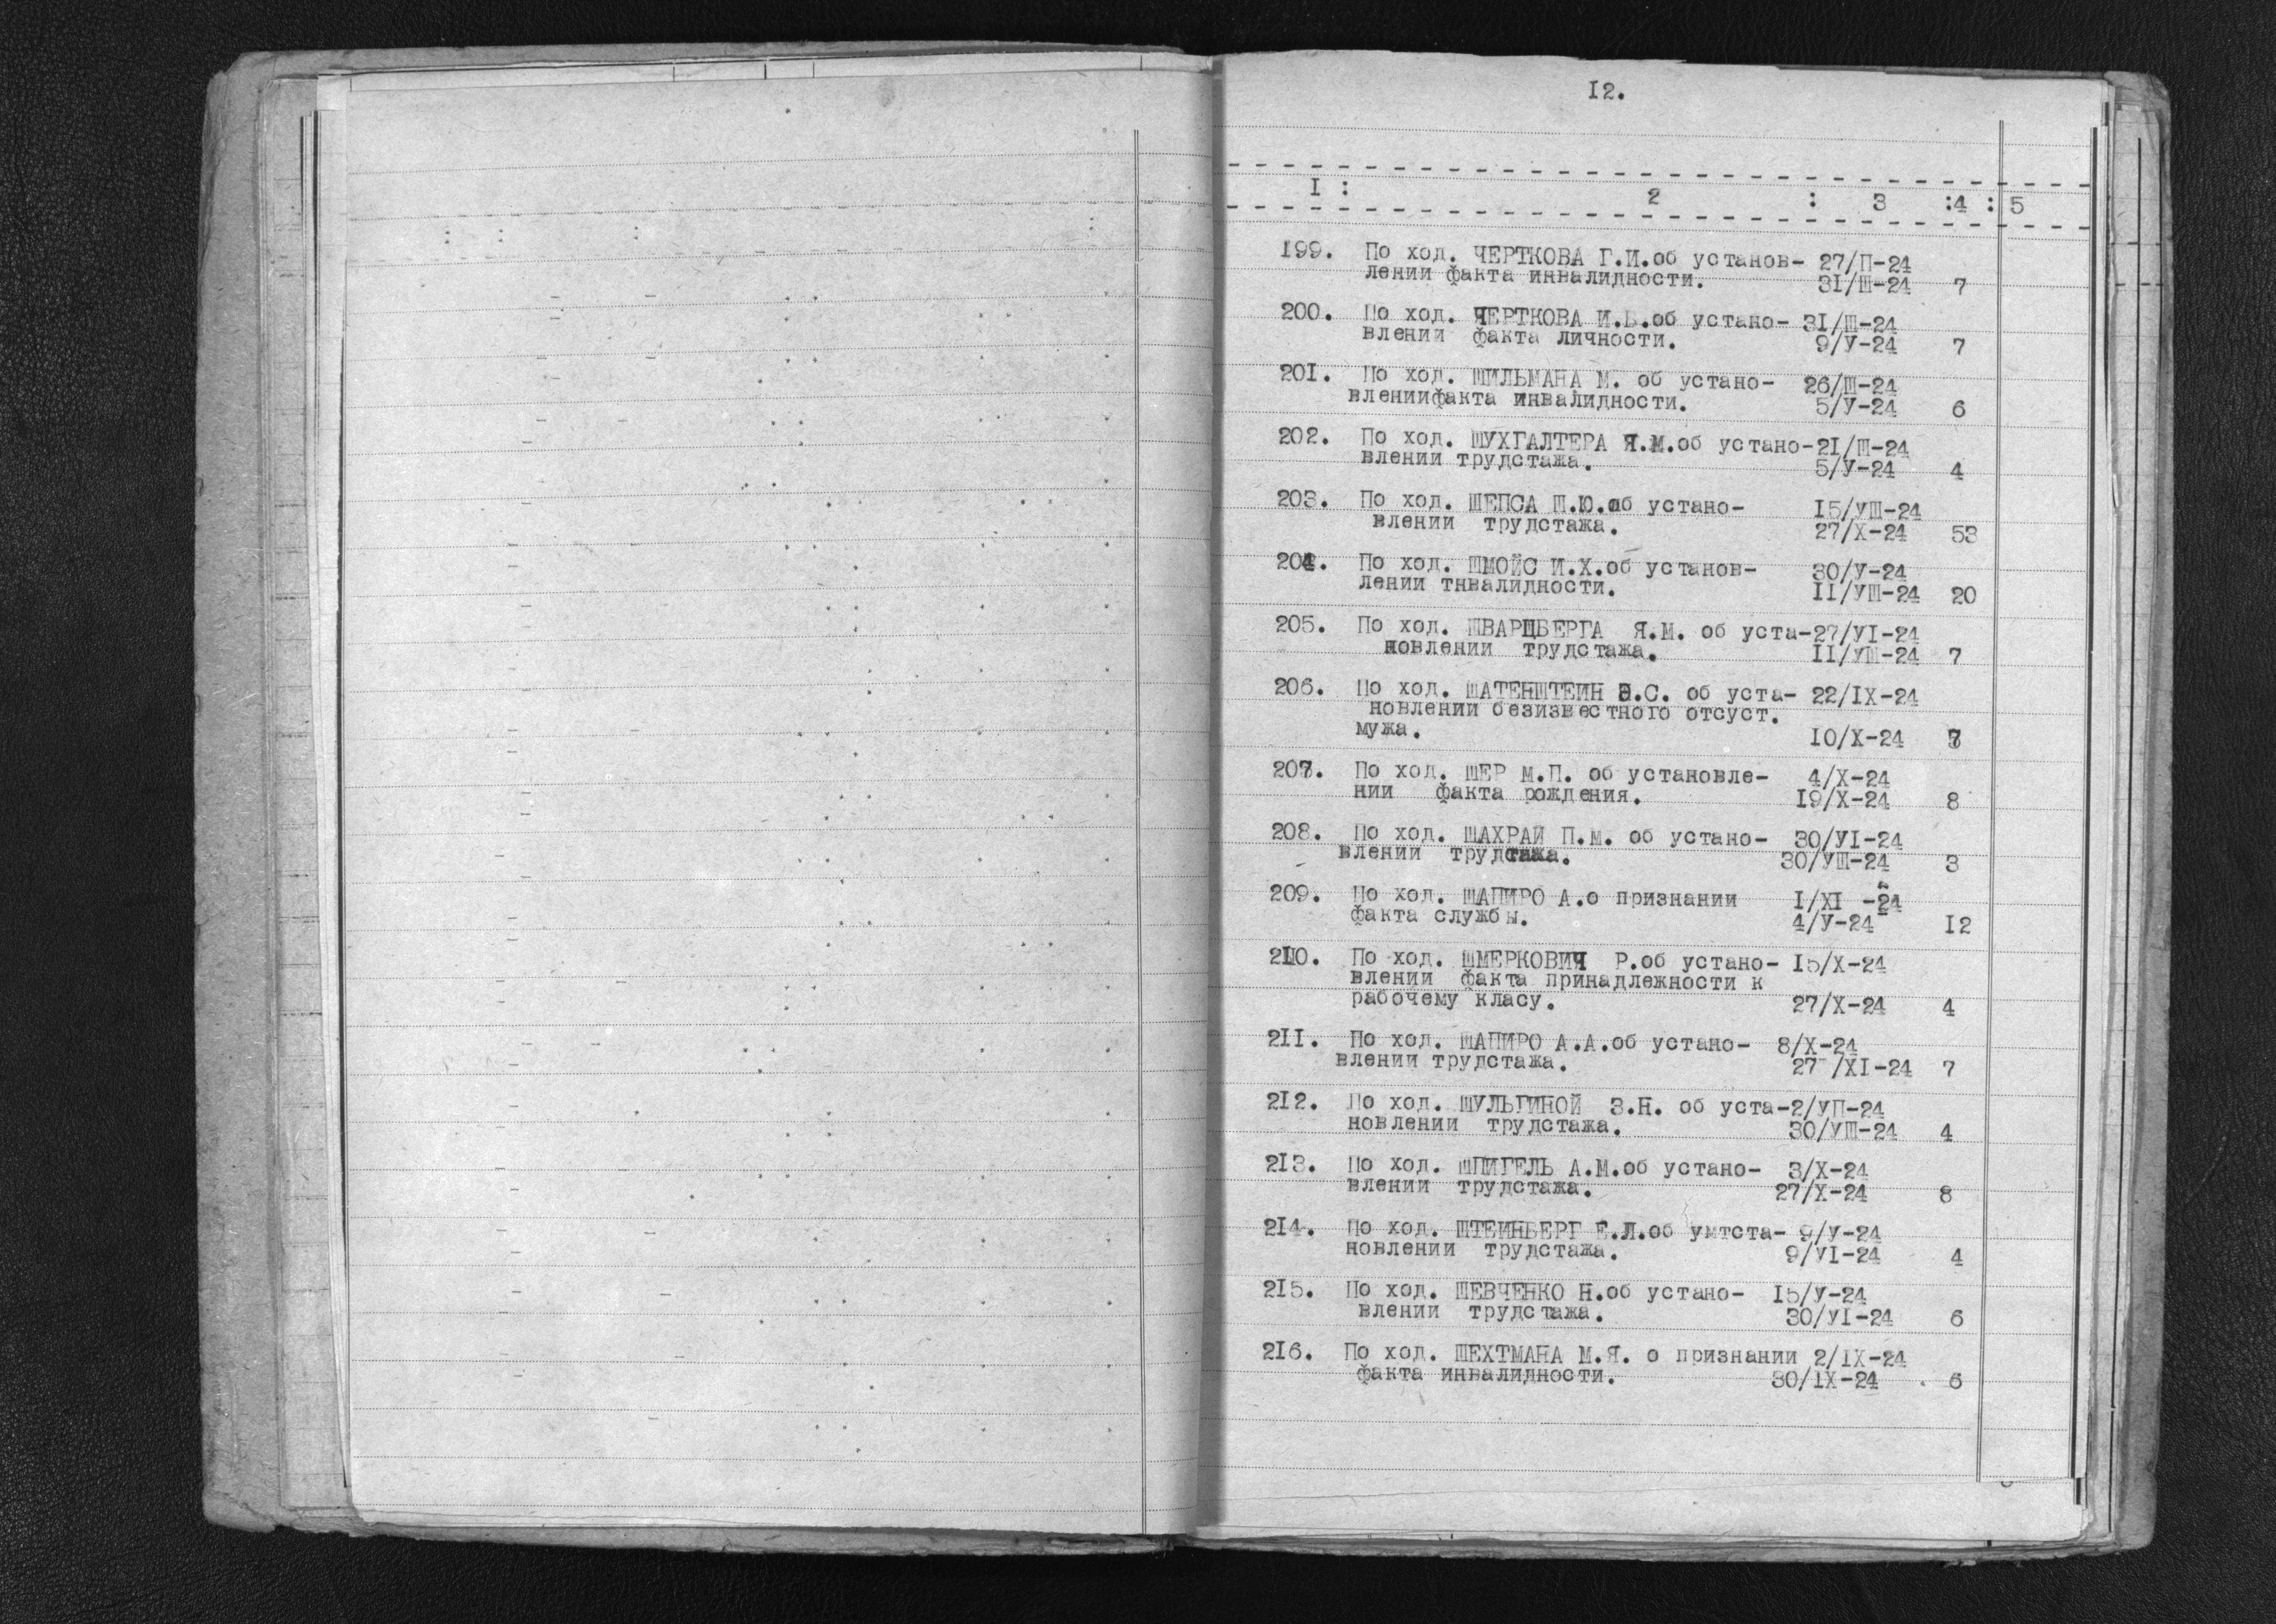 I2.
I : 2 : 3 :4 : 5
199. По ход. ЧЕРТКОВА Г.И.об установ- 27/П-24
лении факта инвалидности. 31/Ш-24 7
200. По ход. ЧЕРТКОВА И.В.об устано- 31/Ш-24
влении факта личности. 9/У-24 7
201. По ход. ШИЛЬМАНА М. об устано- 26/Ш-24
влениифакта инвалидности. 5/У-24 6
202. По ход. ШУХГАЛТЕРА Я.М.об устано-21/Ш-24
влении трудстажа. 5/У-24 4
203. По ход. ШЕПСА Ш.Ю.об устано- I5/УШ-24
влении трудстажа. 27/Х-24 53
204. По ход. ШМОЙС И.Х.об установ- 30/У-24
лении тнвалидности. II/УШ-24 20
205. По ход. ШВАРЦБЕРГА Я.М. об уста-27/УI-24
новлении трудстажа. II/УШ-24 7
206. По ход. ШАТЕНШТЕИН Э.С. об уста- 22/IХ-24
новлении безизвестного отсуст.
мужа. IO/Х-24
207. По ход. ШЕР М.П. об установле- 4/Х-24
нии факта рождения. I9/Х-24 8
208. По ход. ШАХРАЙ П.М. об устано- 30/УI-24
влении трудстажа. 30/УШ-24 3
209. По ход. ШАПИРО А.о признании I/ХI -24
факта службы. 4/У-24 I2
2IO. По ход. ШМЕРКОВИЧ Р.об устано- I5/Х-24
влении факта принадлежности к
рабочему класу. 27/Х-24 4
2II. По ход. ШАПИРО А.А.об устано- 8/Х-24
влении трудстажа. 27 /ХI-24 7
2I2. По ход. ШУЛЬГИНОЙ З.Н. об уста-2/УП-24
новлении трудстажа. 30/УШ-24 4
2I3. По ход. ШПИГЕЛЬ А.М.об устано- 3/Х-24
влении трудстажа. 27/Х-24 8
2I4. По ход. ШТЕИНБЕРГ Е.Л.об умтста- 9/У-24
новлении трудстажа. 9/УI-24 4
2I5. По ход. ШЕВЧЕНКО Н.об устано- I5/У-24
влении трудстажа. 30/УI-24 6
2I6. По ход. ШЕХТМАНА М.Я. о признании 2/IХ-24
факта инвалидности. 30/IХ-24 6